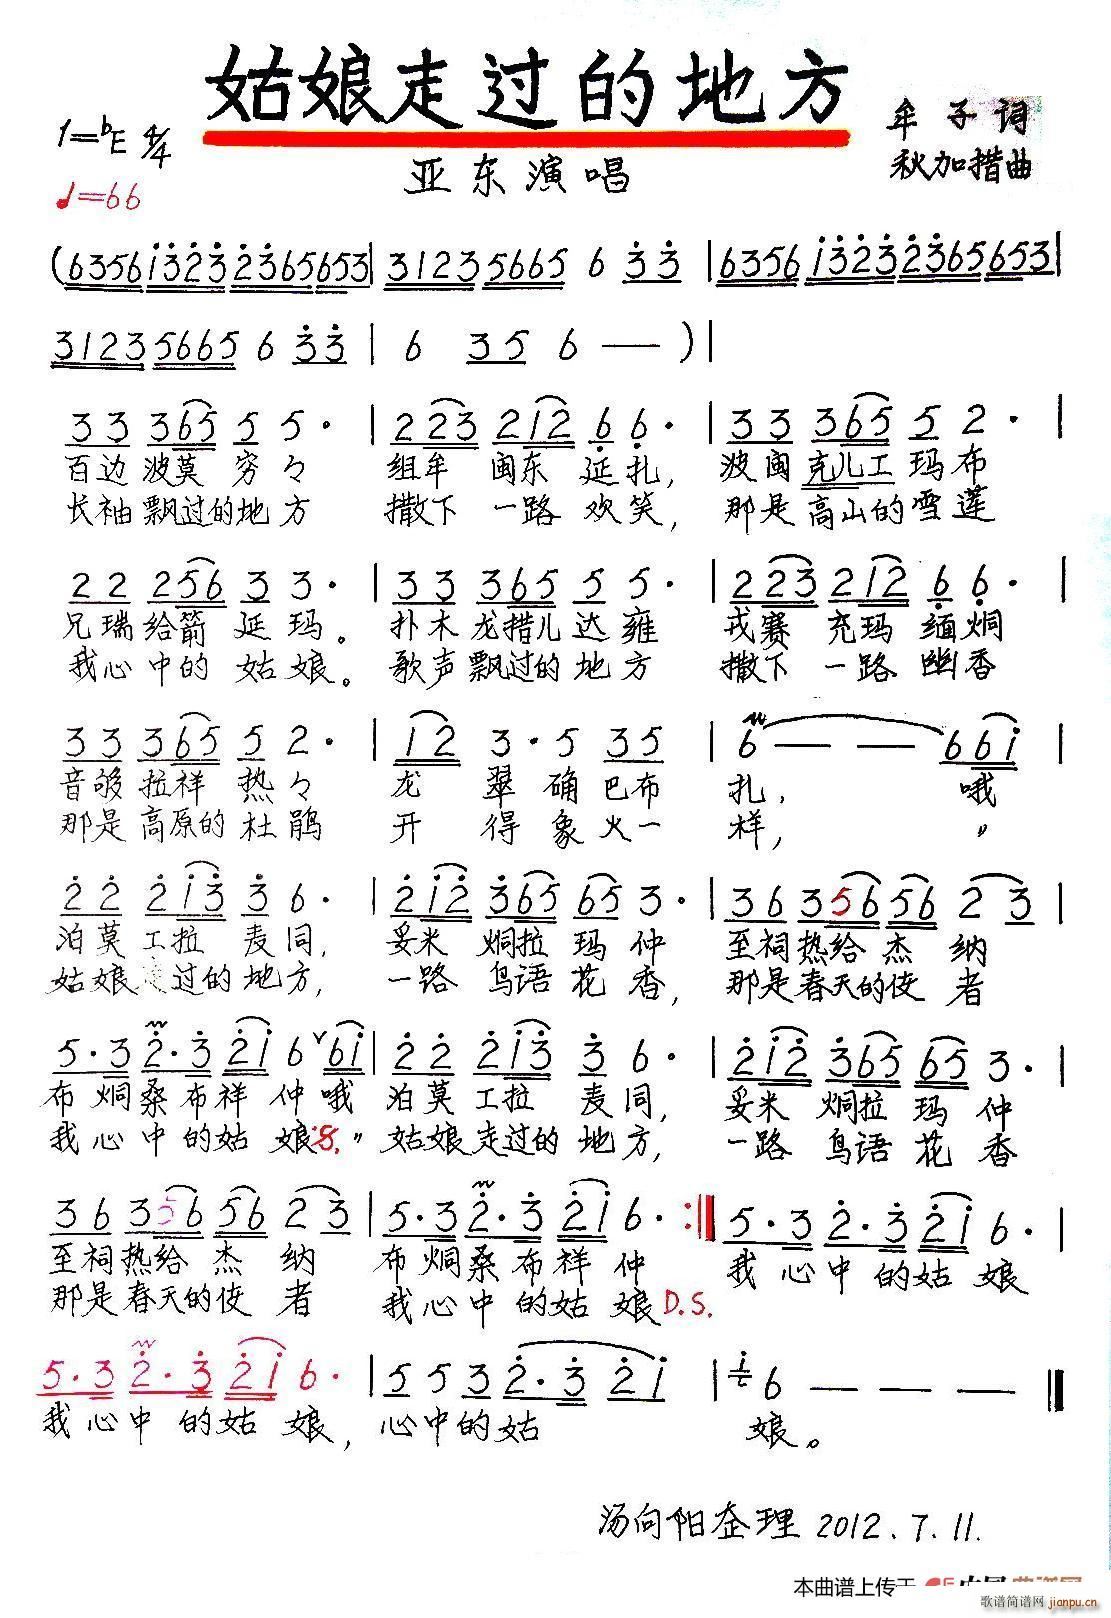 姑娘走过的地方
1=♭E 4/4
牟子词
♩=66
亚东演唱
秋加措曲
(6356i323 23656553| 3123 5665 6 33 |6356 i32323656553|
3123 5665 6 33 | 6 35 6 — )|
33 365 5 5· | 223 212 6 6· | 33 365 5 2· |
百边波莫穷々 组牟闽东延扎, 波闽克儿工玛布
长袖飘过的地方 撒下一路欢笑, 那是高山的雪莲
22 256 3 3· | 33 365 5 5· | 223 212 6 6· |
兄瑞给箭延玛。 扑木龙措儿达雍 戎赛充玛缅炯
我心中的姑娘。 歌声飘过的地方 撒下一路幽香
33 365 5 2· | 12 3·5 35 | 6 — — 66i |
音够拉祥热々 龙翠确巴布 扎, 哦
那是高原的杜鹃 开得象火一 样, 〃
22 2i3 3 6· | 2i2 365 65 3· | 363565656 2 3 |
泊莫工拉麦同, 妥米炯拉玛仲 至祠热给杰纳
姑娘走过的地方, 一路鸟语花香, 那是春天的使者
5·3 2·3 2i 6 6i | 22 2i3 3 6· | 2i2 365 65 3· |
布炯桑布祥仲哦 泊莫工拉麦同, 妥米炯拉玛仲
我心中的姑娘 〃 姑娘走过的地方, 一路鸟语花香
36 356 56 23 | 5·3 2·3 2i 6· :‖ 5·3 2·3 2i 6· |
至祠热给杰纳 布炯桑布祥仲 我心中的姑娘
那是春天的使者 我心中的姑娘 D.S.
5·3 2·3 2i 6· | 553 2·3 2i | 6 — — — ‖
我心中的姑娘, 心中的姑 娘。
汤向阳整理 2012.7.11.
本曲谱上传于
歌谱简谱网
jianpu.cn